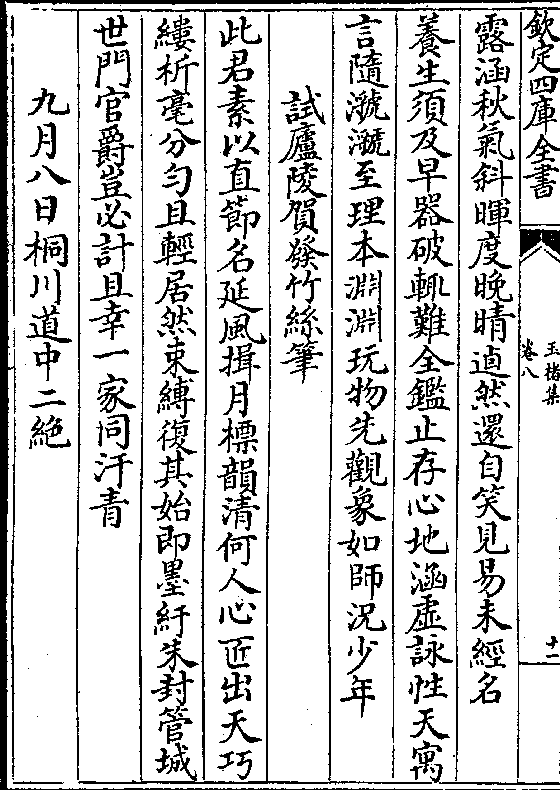 欽定四庫全書
玉楮集
卷八
十一
露涵秋氣斜暉度晚晴逌然還自笑見易未經名
養生須及早器破輒難全鑑止存心地涵虛詠性天寓
言隨㶁㶁至理本淵淵玩物先觀象如師況少年
試廬陵賀發竹絲筆
此君素以直節名延風揖月標韻清何人心匠出天巧
縷析毫分勻且輕居然束縛復其始即墨紆朱封管城
世門官爵豈必計且幸一家同汗青
九月八日桐川道中二絶